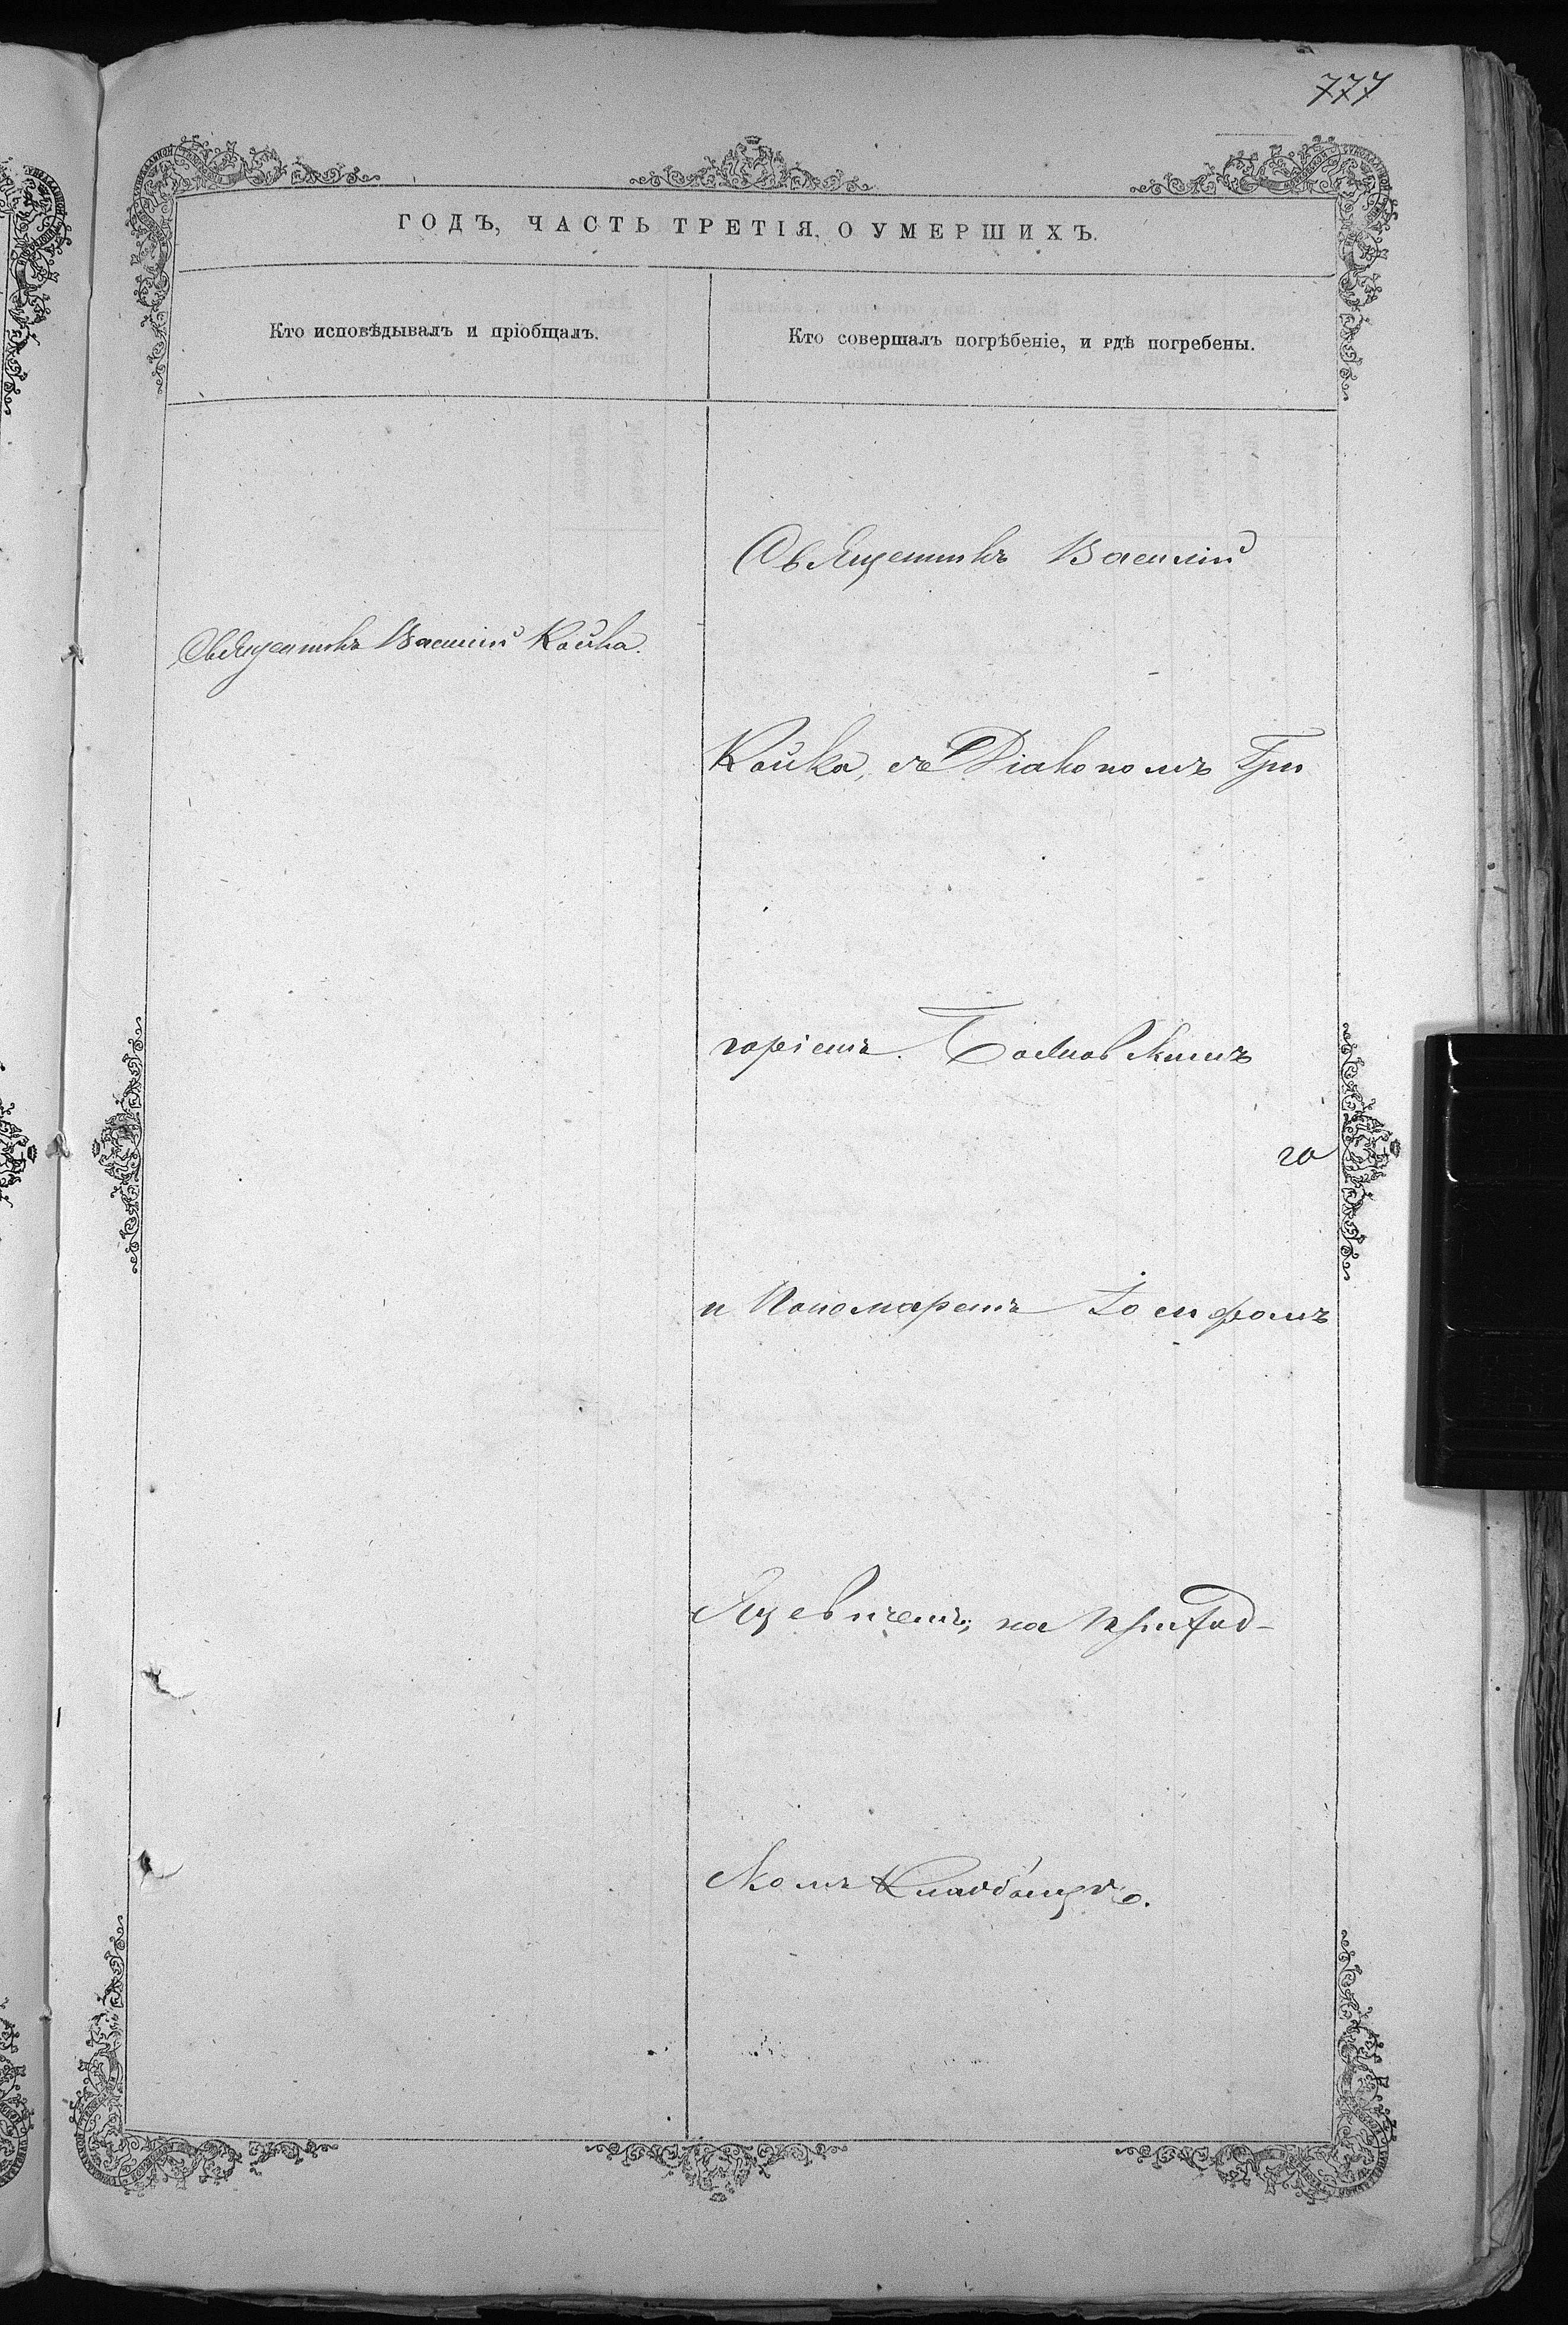 777
ГОДЪ, ЧАСТЬ ТРЕТІЯ, О УМЕРШИХЪ.
Кто исповѣдывалъ и пріобщалъ.
Кто совершалъ погрѣбеніе, и гдѣ погребены.
Священникъ Василій
Священникъ Василій Койка.
Койка, съ Діакономъ Гри
горіемъ
го
и Пономаремъ Іосифомъ
Яцевичемъ, на приход-
скомъ кладбищѣ.